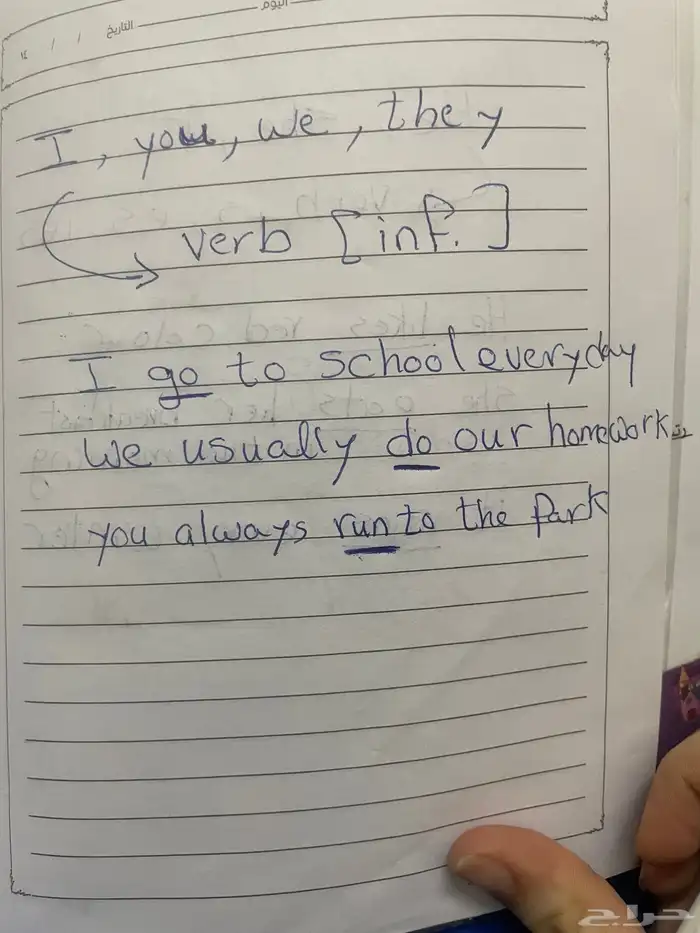 اليوم
التاريخ / / ١٤
I, you, we, they
verb [inf.]
I go to school everyday
We usually do our homework.
you always run to the Park
حراج